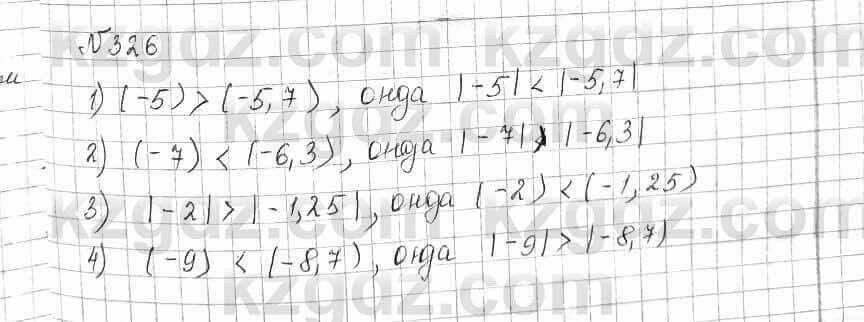 №326
1) (-5) > (-5,7), онда |-5| < |-5,7|
2) (-7) < (-6,3), онда |-7| > |-6,3|
3) |-2| > |-1,25|, онда (-2) < (-1,25)
4) (-9) < (-8,7), онда |-9| > |-8,7|
kzgdz.com kzgdz.com